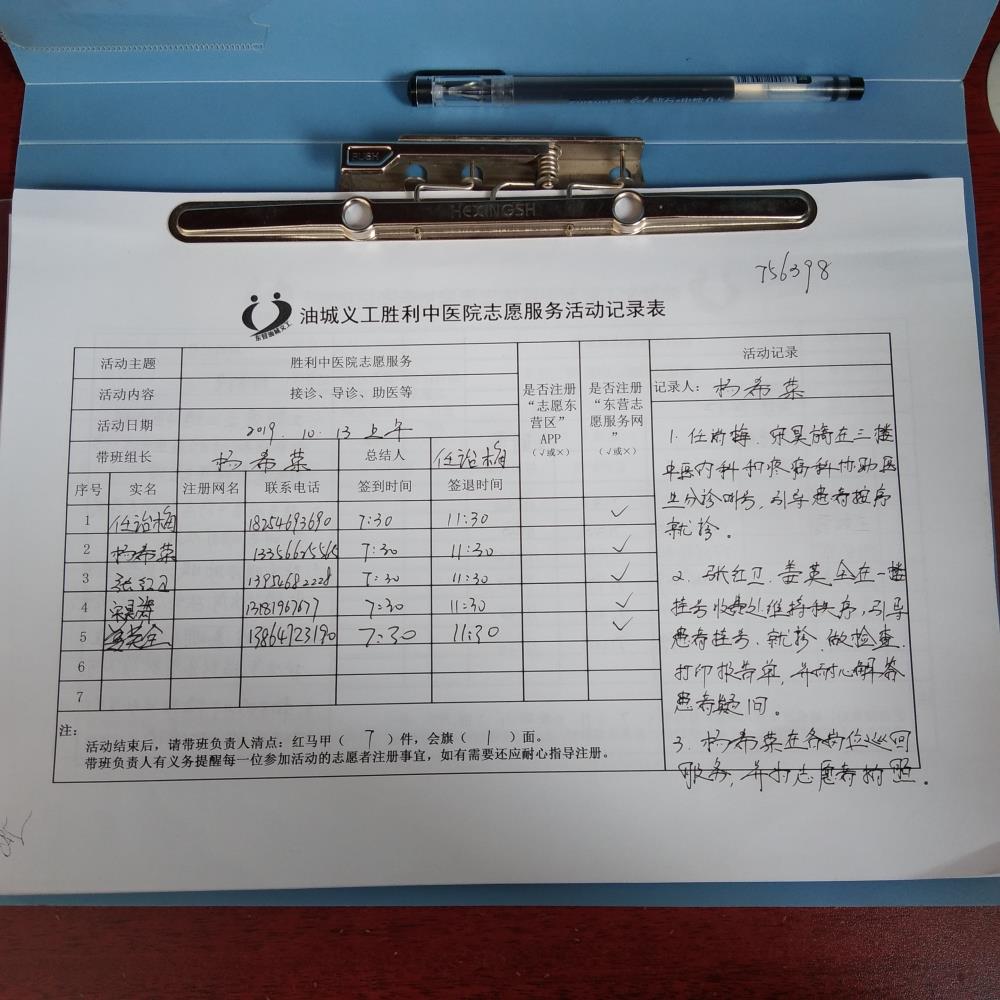 PUSH
HEXINGSH
756398
东营油城义工
油城义工胜利中医院志愿服务活动记录表
活动主题 胜利中医院志愿服务
活动内容 接诊、导诊、助医等
活动日期 2019.10.13上午
带班组长 杨希菜 总结人 任诒梅
是否注册“志愿东营区”APP（√或×）
是否注册“东营志愿服务网”（√或×）
序号 实名 注册网名 联系电话 签到时间 签退时间
1 任诒梅 18254693690 7:30 11:30 ✓
2 杨希菜 13356625565 7:30 11:30 ✓
3 张红卫 13954682228 7:30 11:30 ✓
4 13181967677 7:30 11:30 ✓
5 姜英全 13864723190 7:30 11:30 ✓
6
7
注：
活动结束后，请带班负责人清点：红马甲（ 7 ）件，会旗（ 1 ）面。
带班负责人有义务提醒每一位参加活动的志愿者注册事宜，如有需要还应耐心指导注册。
活动记录
记录人：杨希菜
1. 任诒梅、宋昊旖在三楼
中医内科和疼痛科协助医
生分诊叫号，引导患者按序
就诊。
2、张红卫、姜英全在一楼
挂号收费处维持秩序，引导
患者挂号、就诊、做检查、
打印报告单，并耐心解答
患者疑问。
3、杨希菜在各岗位巡回
服务，并为志愿者拍照。